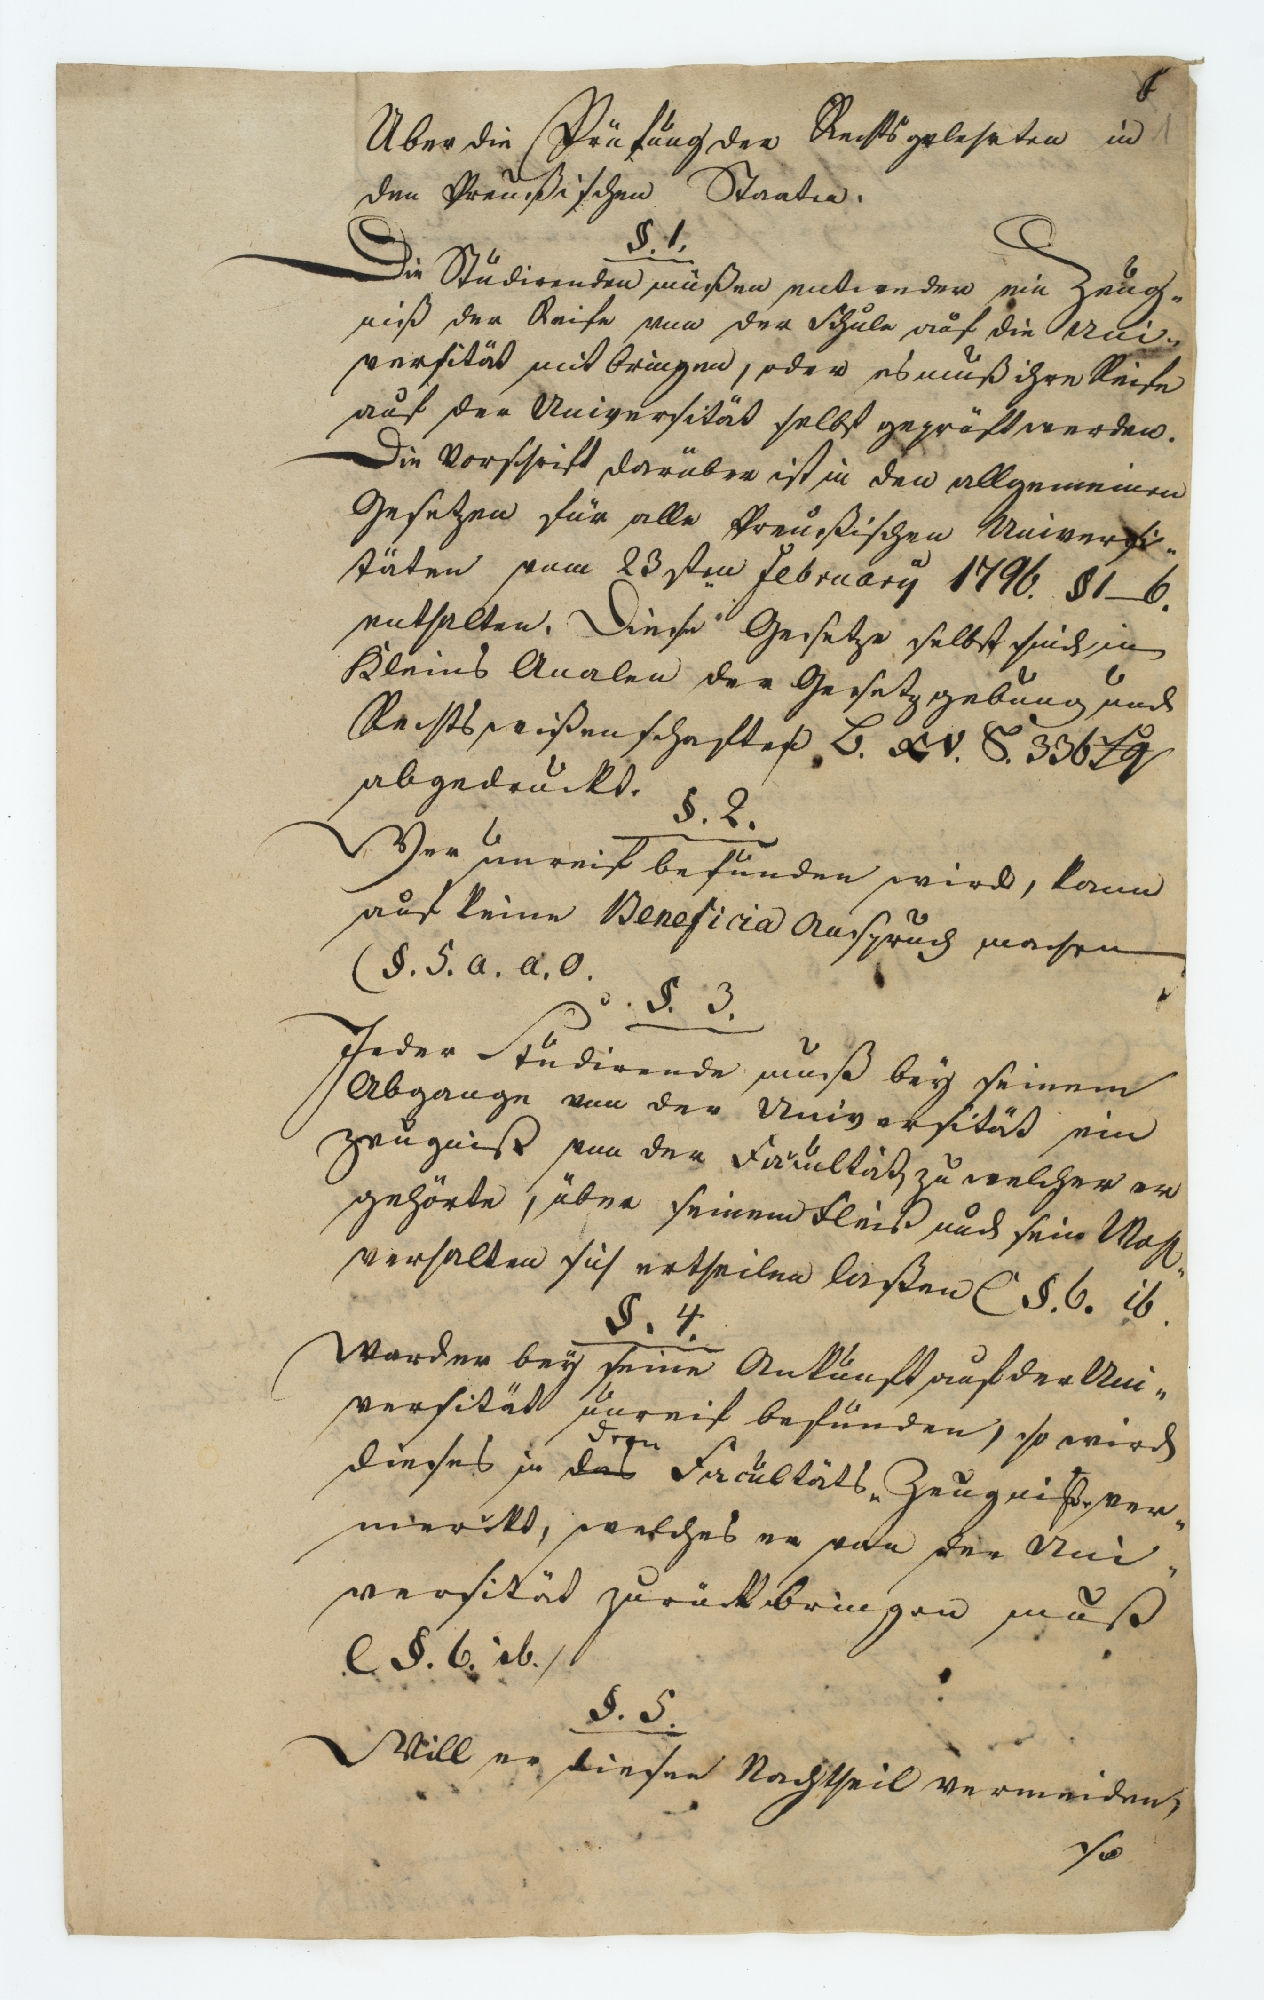 Uber die Prüfung der Rechtsgelehrten in
den Preußischen Staaten.
§. 1.
Die Studirenden müßen entweder ein Zeug„
niß der Reife von der Schule auf die Uni„
versität mit bringen, oder es muß ihre Reife
auf der Universität selbst geprüft werden.
Die Vorschrift darüber ist in den allgemeinen
Gesetzen für alle Preußischen Universi„
täten vom 23sten February 1796. § 1–6.
enthalten. Diese Gesetze selbst sind in
Kleins Analen der Gesetzgebung und
Rechtswißenschaften B. XV. S. 336 sq
abgedruckt.
§. 2.
Wer unreif befunden wird, kann
auf keine Beneficia Anspruch machen
(§. 5. a. a. O.
§. 3.
Jeder Studirende muß bey seinem
Abgange von der Universität ein
Zeugniß von der Facultät, zu welcher er
gehörte, über seinem Fleiß und sein Wohl„
verhalten sich ertheilen laßen (§. 6. ib.
§. 4.
Warder bey seine Ankunft auf der Uni„
versität unreif befunden, so wird
dieses in das Facultäts„Zeugniß ver„
merckt, welches er von der Uni„
versität zurückbringen muß
(§. 6. ib./
§. 5.
Will er diesen Nachtheil vermeiden,
so